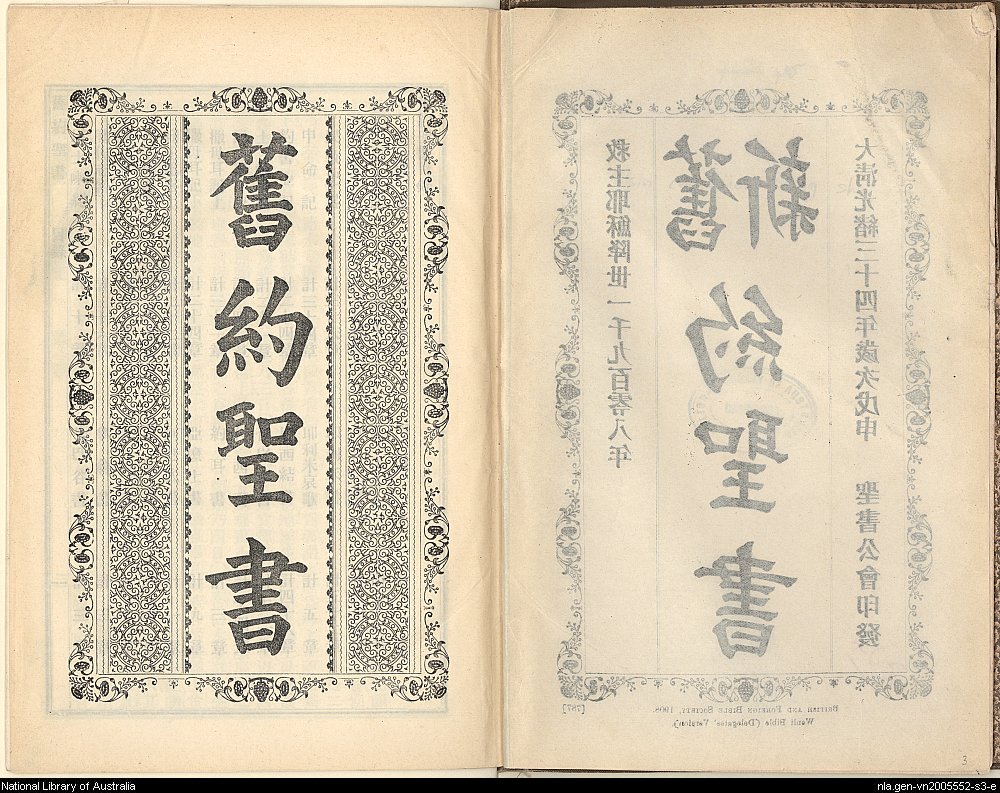 舊約聖書
救主耶穌降世一千九百零八年
舊新約聖書
大清光緒三十四年歲次戊申 聖書公會印發
BRITISH AND FOREIGN BIBLE SOCIETY, 1908. [787]
Wenli Bible (Delegates' Version).
3
National Library of Australia
nla.gen-vn2005552-s3-e